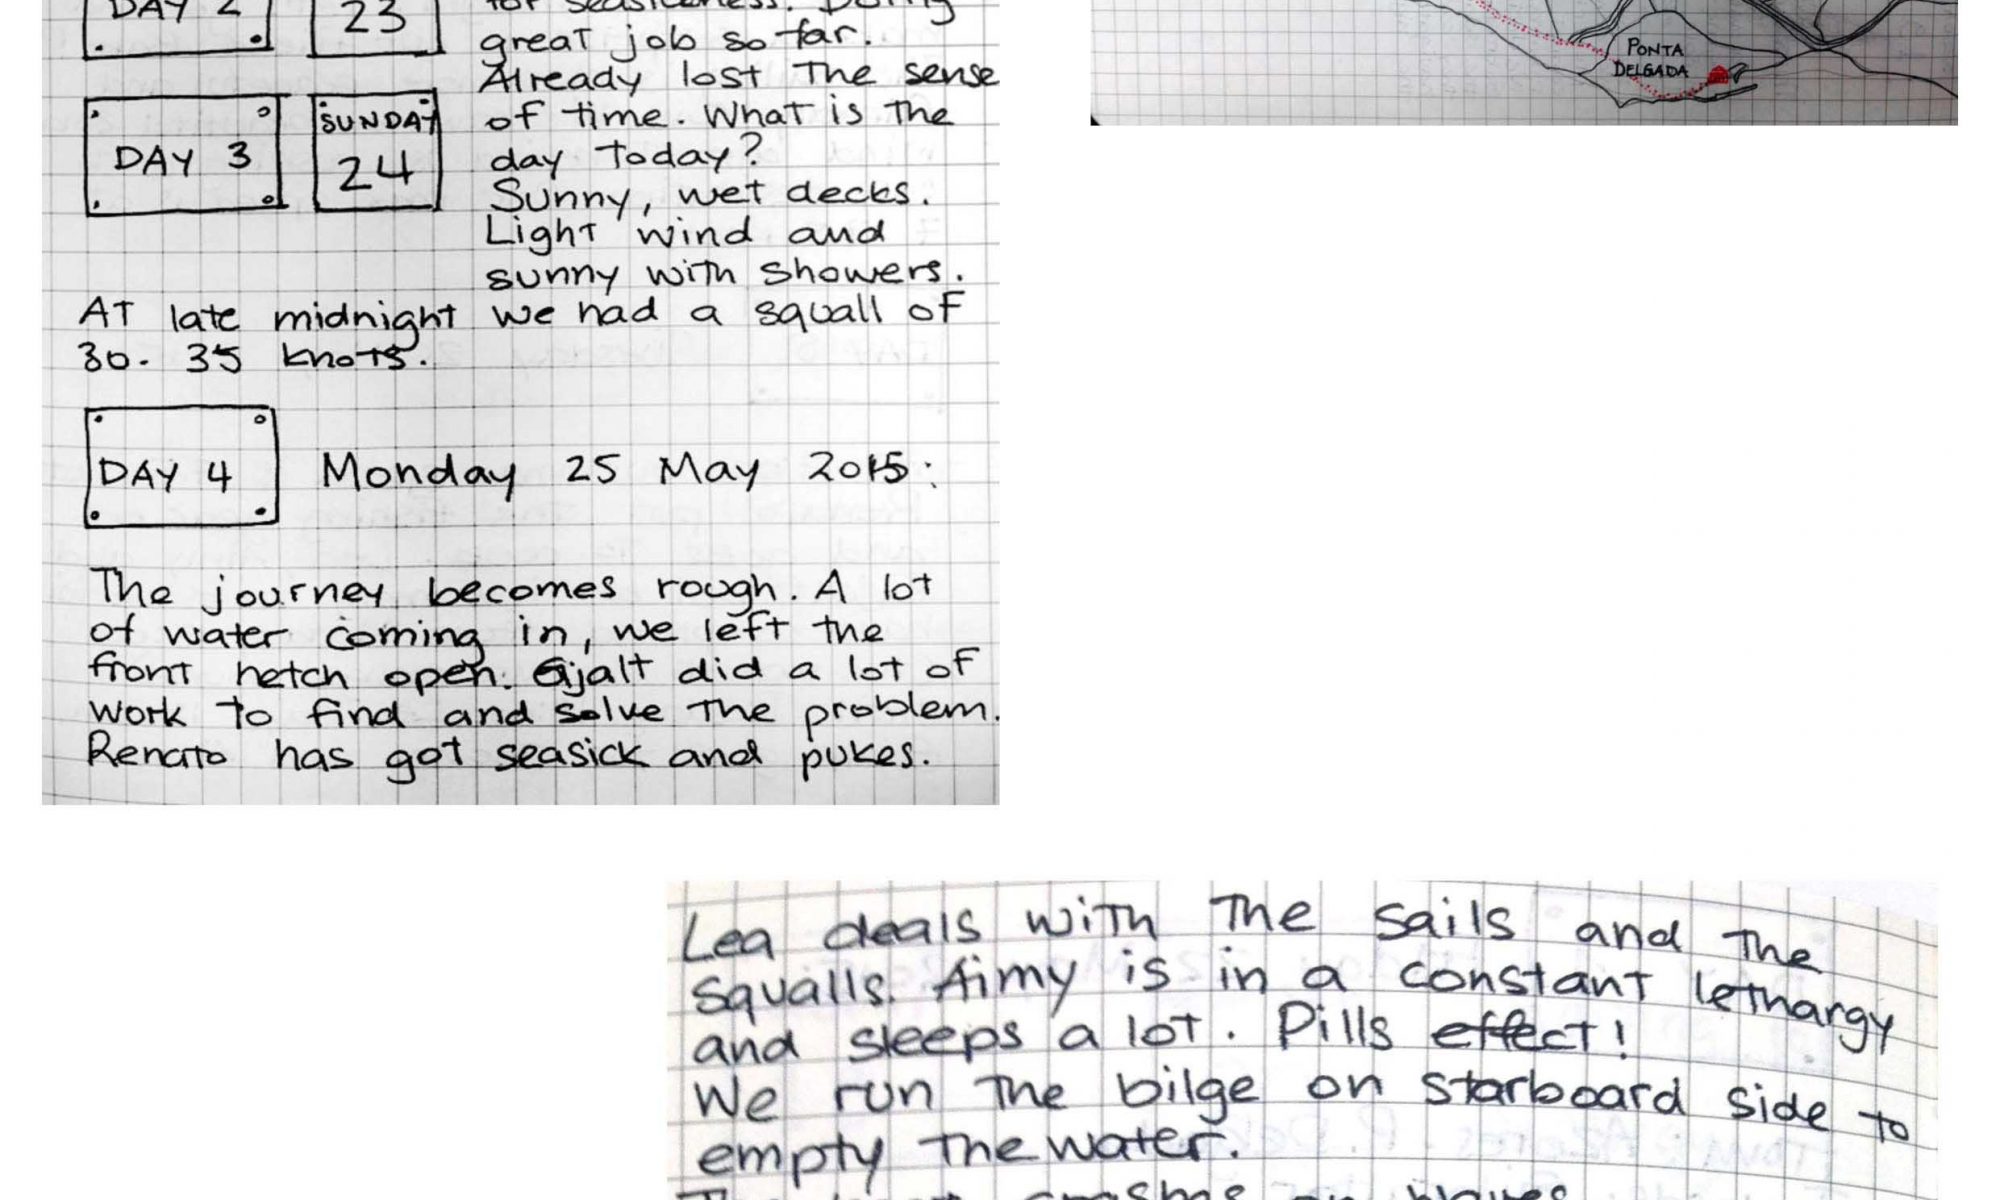 DAY 2
23
for seasickness. Doing
great job so far.
Already lost the sense
DAY 3
SUNDAY
24
of time. What is the
day today?
Sunny, wet decks.
Light wind and
sunny with showers.
At late midnight we had a squall of
30-35 knots.
DAY 4 Monday 25 May 2015:
The journey becomes rough. A lot
of water coming in, we left the
front hetch open. Gjalt did a lot of
work to find and solve the problem.
Renato has got seasick and pukes.
PONTA
DELGADA
Lea deals with the sails and the
squalls. Aimy is in a constant lethargy
and sleeps a lot. Pills effect!
We run the bilge on starboard side to
empty the water.